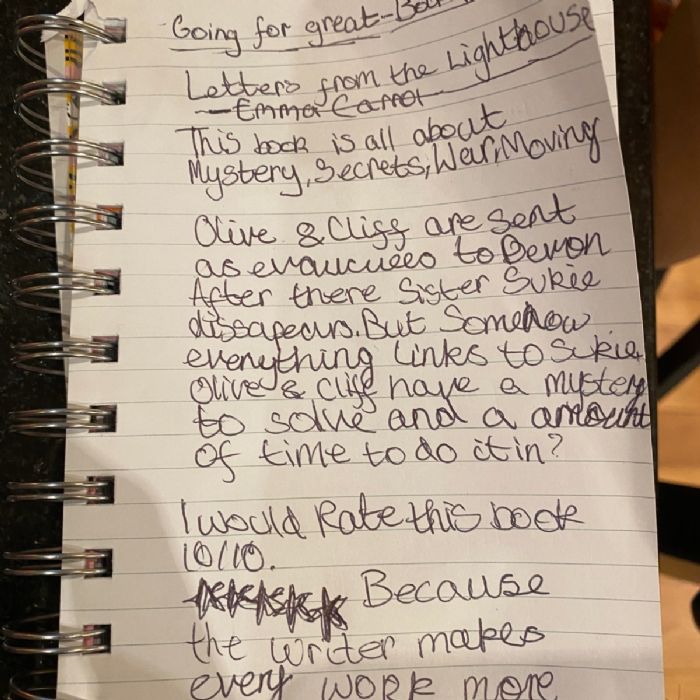 Going for great-
Letters from the Lighthouse
-Emma Carrol
This book is all about
Mystery, Secrets, War, Moving
Olive & Cliff are sent
as evaucuees to Devon
After there Sister Sukie
dissapears. But Somehow
everything Links to Sukie.
Olive & Cliff have a mystery
to solve and a amount
of time to do it in?
I would Rate this book
10/10.
Because
the writer makes
every work more